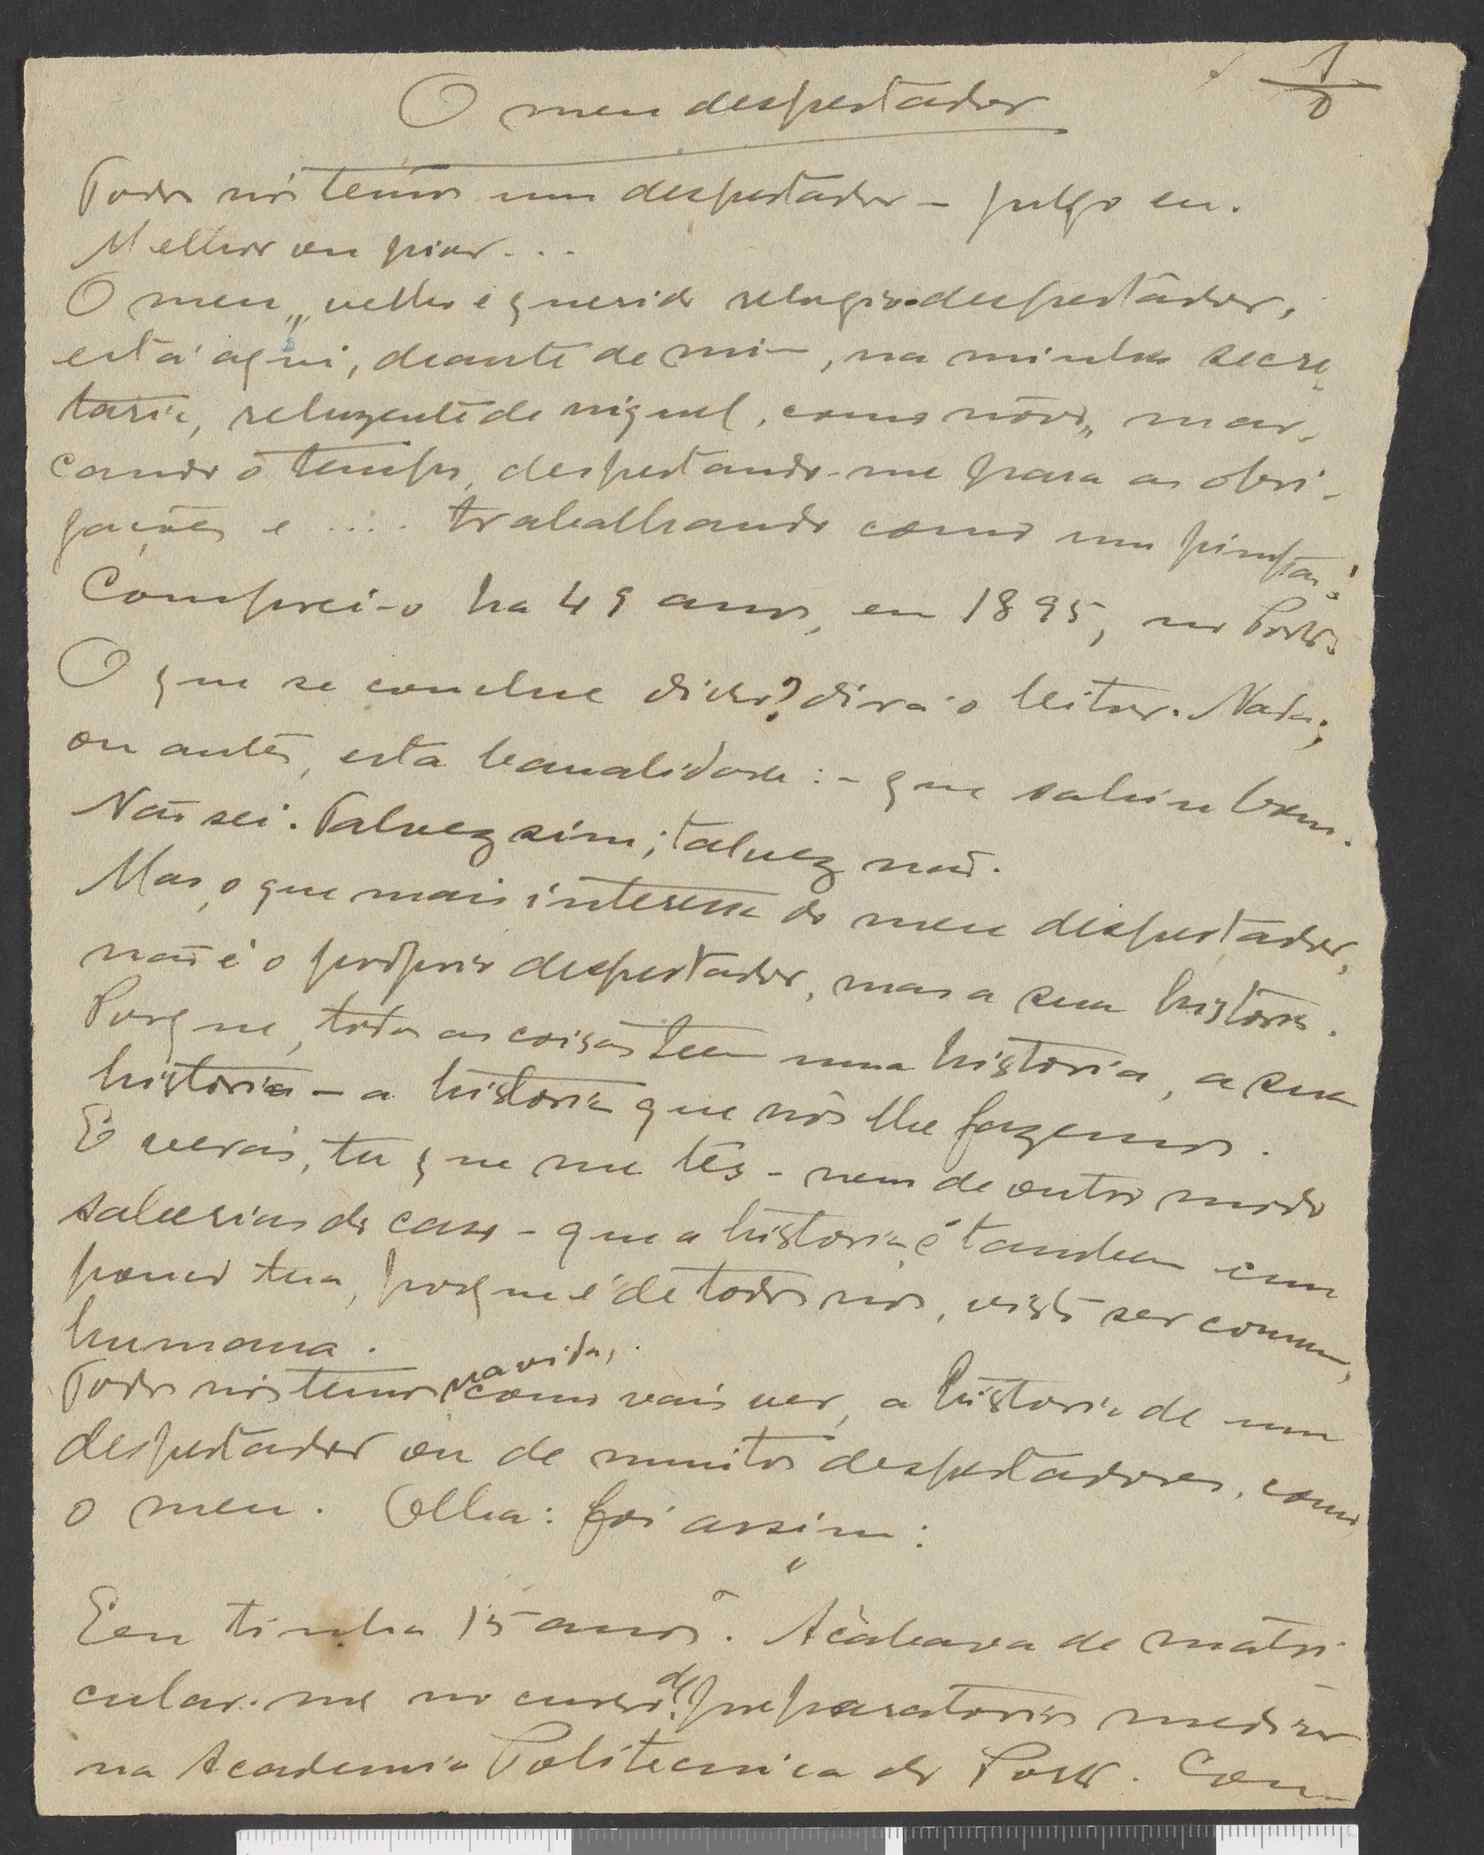 1
O meu despertador
Todos nós temos um despertador - julgo eu.
Melhor ou pior...
O meu velho e querido relogio despertador,
está aqui, deante de mim, na minha secre
taria, reluzente de niquel, como nôvo, mar-
cando o tempo, despertando-me para as obri-
gações e .... trabalhando como um pimpão!
Comprei-o ha 49 anos, em 1895, no Porto.
O que se conclue disso? dirá o leitor. Nada;
ou antes, esta banalidade: - que saíu bom.
Não sei. Talvez sim; talvez não.
Mas, o que mais interessa do meu despertador,
não é o proprio despertador, mas a sua historia.
Porque, todas as coisas teem uma historia, a sua
historia - a historia que nós lhe fazemos.
E verás, tu que me lês - nem de outro modo
saberias do caso - que a historia é tambem um
pouco tua, porque é de todos nós, visto ser comum,
humana.
Todos nós temos na vida, como vais ver, a historia de um
despertador ou de muitos despertadores, como
o meu. Olha: foi assim:
Eu tinha 15 anos. Acabava de matri
cular-me no curso de preparatorios medicos
na Academia Politecnica do Porto. Com-